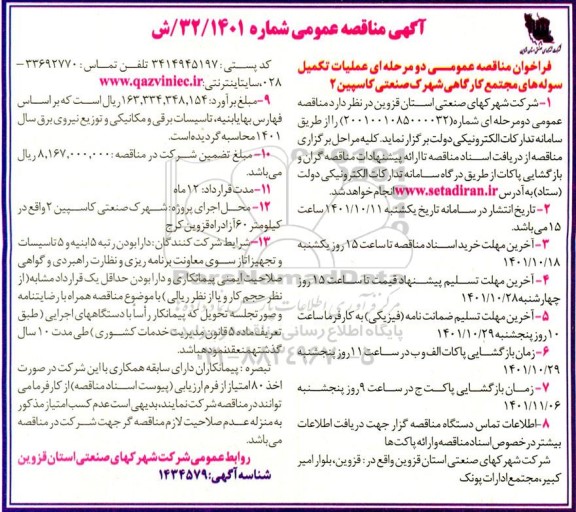 آگهی مناقصه عمومی شماره ۳۲/۱۴۰۱/ش
فراخوان مناقصه عمومی دو مرحله ای عملیات تکمیل
سوله های مجتمع کارگاهی شهرک صنعتی کاسپین ۲
۱- شرکت شهرکهای صنعتی استان قزوین در نظر دارد مناقصه
عمومی دو مرحله ای شماره (۲۰۰۱۰۰۱۰۸۵۰۰۰۰۳۲) را از طریق
سامانه تدارکات الکترونیکی دولت برگزار نماید. کلیه مراحل برگزاری
مناقصه از دریافت اسناد مناقصه تا ارائه پیشنهادات مناقصه گران و
بازگشایی پاکات از طریق درگاه سامانه تدارکات الکترونیکی دولت
(ستاد) به آدرس www.setadiran.ir انجام خواهد شد.
۲- تاریخ انتشار در سامانه تاریخ یکشنبه ۱۴۰۱/۱۰/۱۱ ساعت
۱۵ می باشد.
۳- آخرین مهلت خرید اسناد مناقصه تا ساعت ۱۵ روز یکشنبه
۱۴۰۱/۱۰/۱۸
۴- آخرین مهلت تسلیم پیشنهاد قیمت تا ساعت ۱۵ روز
چهارشنبه ۱۴۰۱/۱۰/۲۸
۵- آخرین مهلت تسلیم ضمانت نامه (فیزیکی) به کارفرما ساعت
۱۰ روز پنجشنبه ۱۴۰۱/۱۰/۲۹
۶- زمان بازگشایی پاکات الف و ب در ساعت ۱۱ روز پنجشنبه
۱۴۰۱/۱۰/۲۹
۷- زمان بازگشایی پاکت ج در ساعت ۹ روز پنجشنبه
۱۴۰۱/۱۱/۰۶
۸- اطلاعات تماس دستگاه مناقصه گزار جهت دریافت اطلاعات
بیشتر در خصوص اسناد مناقصه و ارائه پاکت ها
شرکت شهرکهای صنعتی استان قزوین واقع در: قزوین، بلوار امیر
کبیر، مجتمع ادارات پونک
کد پستی: ۳۴۱۴۹۴۵۱۹۷ تلفن تماس: ۳۳۶۹۲۷۷۰-
۰۲۸، سایت اینترنتی: www.qazviniec.ir
۹- مبلغ برآورد: ۱۶۳,۳۳۴,۳۴۸,۱۵۴ ریال است که بر اساس
فهارس بهای ابنیه، تاسیسات برقی و مکانیکی و توزیع نیروی برق سال
۱۴۰۱ محاسبه گردیده است.
۱۰- مبلغ تضمین شرکت در مناقصه: ۸,۱۶۷,۰۰۰,۰۰۰ ریال
می باشد.
۱۱- مدت قرارداد: ۱۲ ماه
۱۲- محل اجرای پروژه: شهرک صنعتی کاسپین ۲ واقع در
کیلومتر ۶۰ آزادراه قزوین کرج
۱۳- شرایط شرکت کنندگان: دارا بودن رتبه ۵ ابنیه و ۵ تاسیسات
و تجهیزات از سوی معاونت برنامه ریزی و نظارت راهبردی و گواهی
صلاحیت ایمنی پیمانکاری و دارا بودن حداقل یک قرارداد مشابه (از
نظر حجم کار و یا از نظر ریالی) با موضوع مناقصه همراه با رضایتنامه
و صورتجلسه تحویل که پیمانکار رأساً با دستگاههای اجرایی (طبق
تعریف ماده ۵ قانون مدیریت خدمات کشوری) طی مدت ۱۰ سال
گذشته منعقد نموده باشد.
تبصره: پیمانکاران دارای سابقه همکاری با این شرکت در صورت
اخذ ۸۰ امتیاز از فرم ارزیابی (پیوست اسناد مناقصه) از کارفرما می
توانند در مناقصه شرکت نمایند، بدیهی است عدم کسب امتیاز مذکور
به منزله عدم صلاحیت لازم مناقصه گر جهت شرکت در مناقصه
می باشد.
روابط عمومی شرکت شهرکهای صنعتی استان قزوین
شناسه آگهی: ۱۴۳۴۵۷۹
ParsNamadData
پایگاه اطلاع رسانی
۰۲۱-۸۸۳۴۹۶۷۰-۵